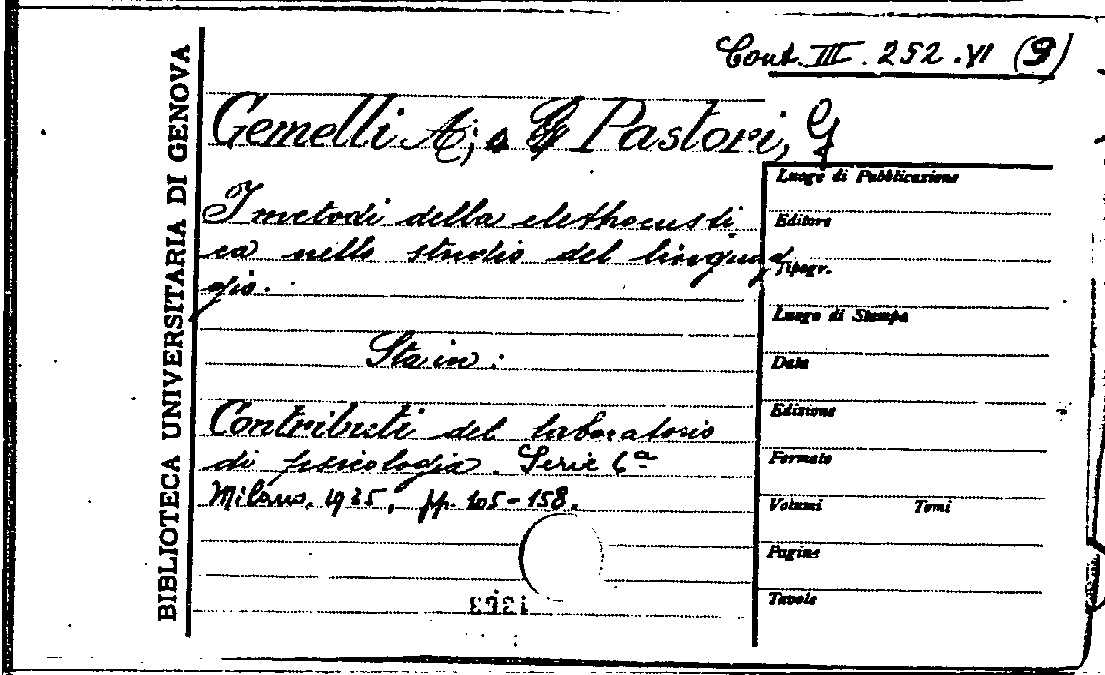 Cont. III. 252. VI (9)
BIBLIOTECA UNIVERSITARIA DI GENOVA
Gemelli A; e Pastori, G
I metodi della elethocusti
ca nello studio del linguag
gio.
Sta in:
Contributi del laboratorio
di psicologia. Serie 6ª
Milano, 1935, pp. 105-158.
Luogo di Pubblicazione
Editore
Tipogr.
Luogo di Stampa
Data
Edizione
Formato
Volumi Tomi
Pagine
Tavole